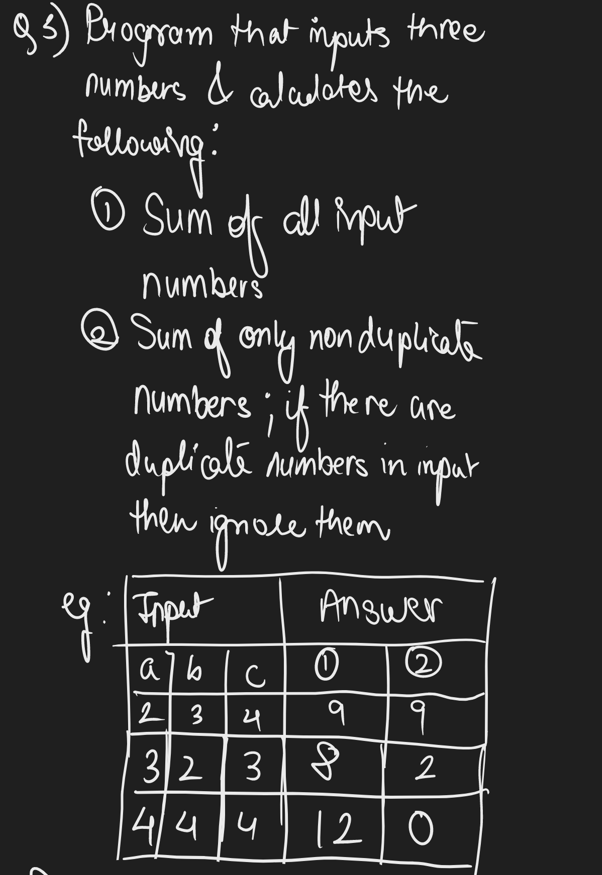 Q3) Program that inputs three
numbers & calculates the
following:
① Sum of all input
numbers
② Sum of only non duplicate
numbers ; if there are
duplicate numbers in input
then ignore them
eg: Input Answer
a b c ① ②
2 3 4 9 9
3 2 3 8 2
4 4 4 12 0